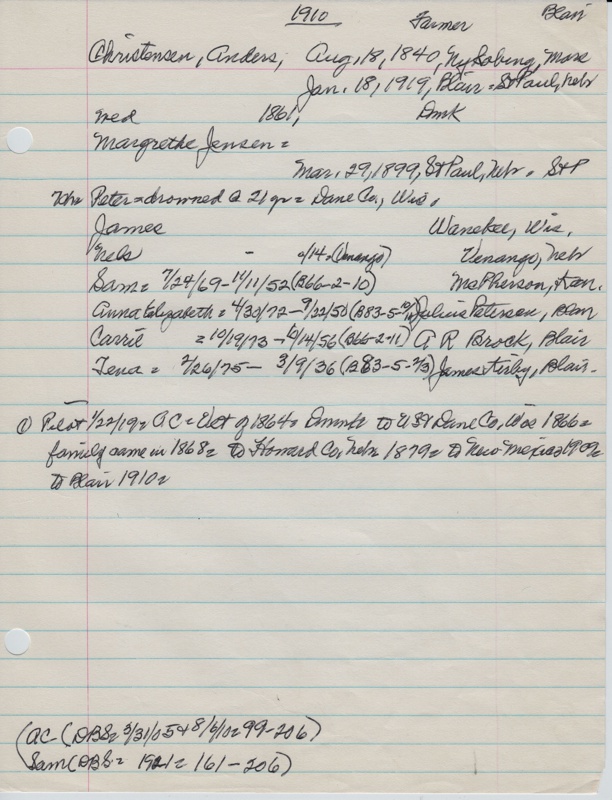 1910 Farmer Blair
Christensen, Anders, Aug. 18, 1840, Nykobing, Mors
Jan. 18, 1919, Blair = St Paul, Nebr
med 1861, Dmk
Margrethe Jensen =
Mar. 29, 1899, St Paul, Nebr. StP
Peter = drowned @ 21 yr = Dane Co., Wis.
James Wanekee, Wis.
Nels - (Venango) Venango, Nebr
Sam = 7/24/69-11/11/52 (B66-2-10) McPherson, Kan.
Anna Elizabeth = 4/30/72-9/22/50 (B83-5- Julius Petersen, Blair
Carrie = 10/19/73 - 10/14/56 (B66-2-11) A R Brock, Blair
Tena = 2/26/75 - 3/9/36 (B83-5-2/3) James Kirby, Blair-
① Pilot 1/22/19 = AC = Vet of 1864. to USA Dane Co, Wis 1866 =
family came in 1868 = to Howard Co, Nebr 1879 = to New Mexico 1909 =
to Blair 1910 =
(AC (DBS= 3/31/05 + 8/6/0= 99-206)
Sam (DBS= 1921 = 161-206)